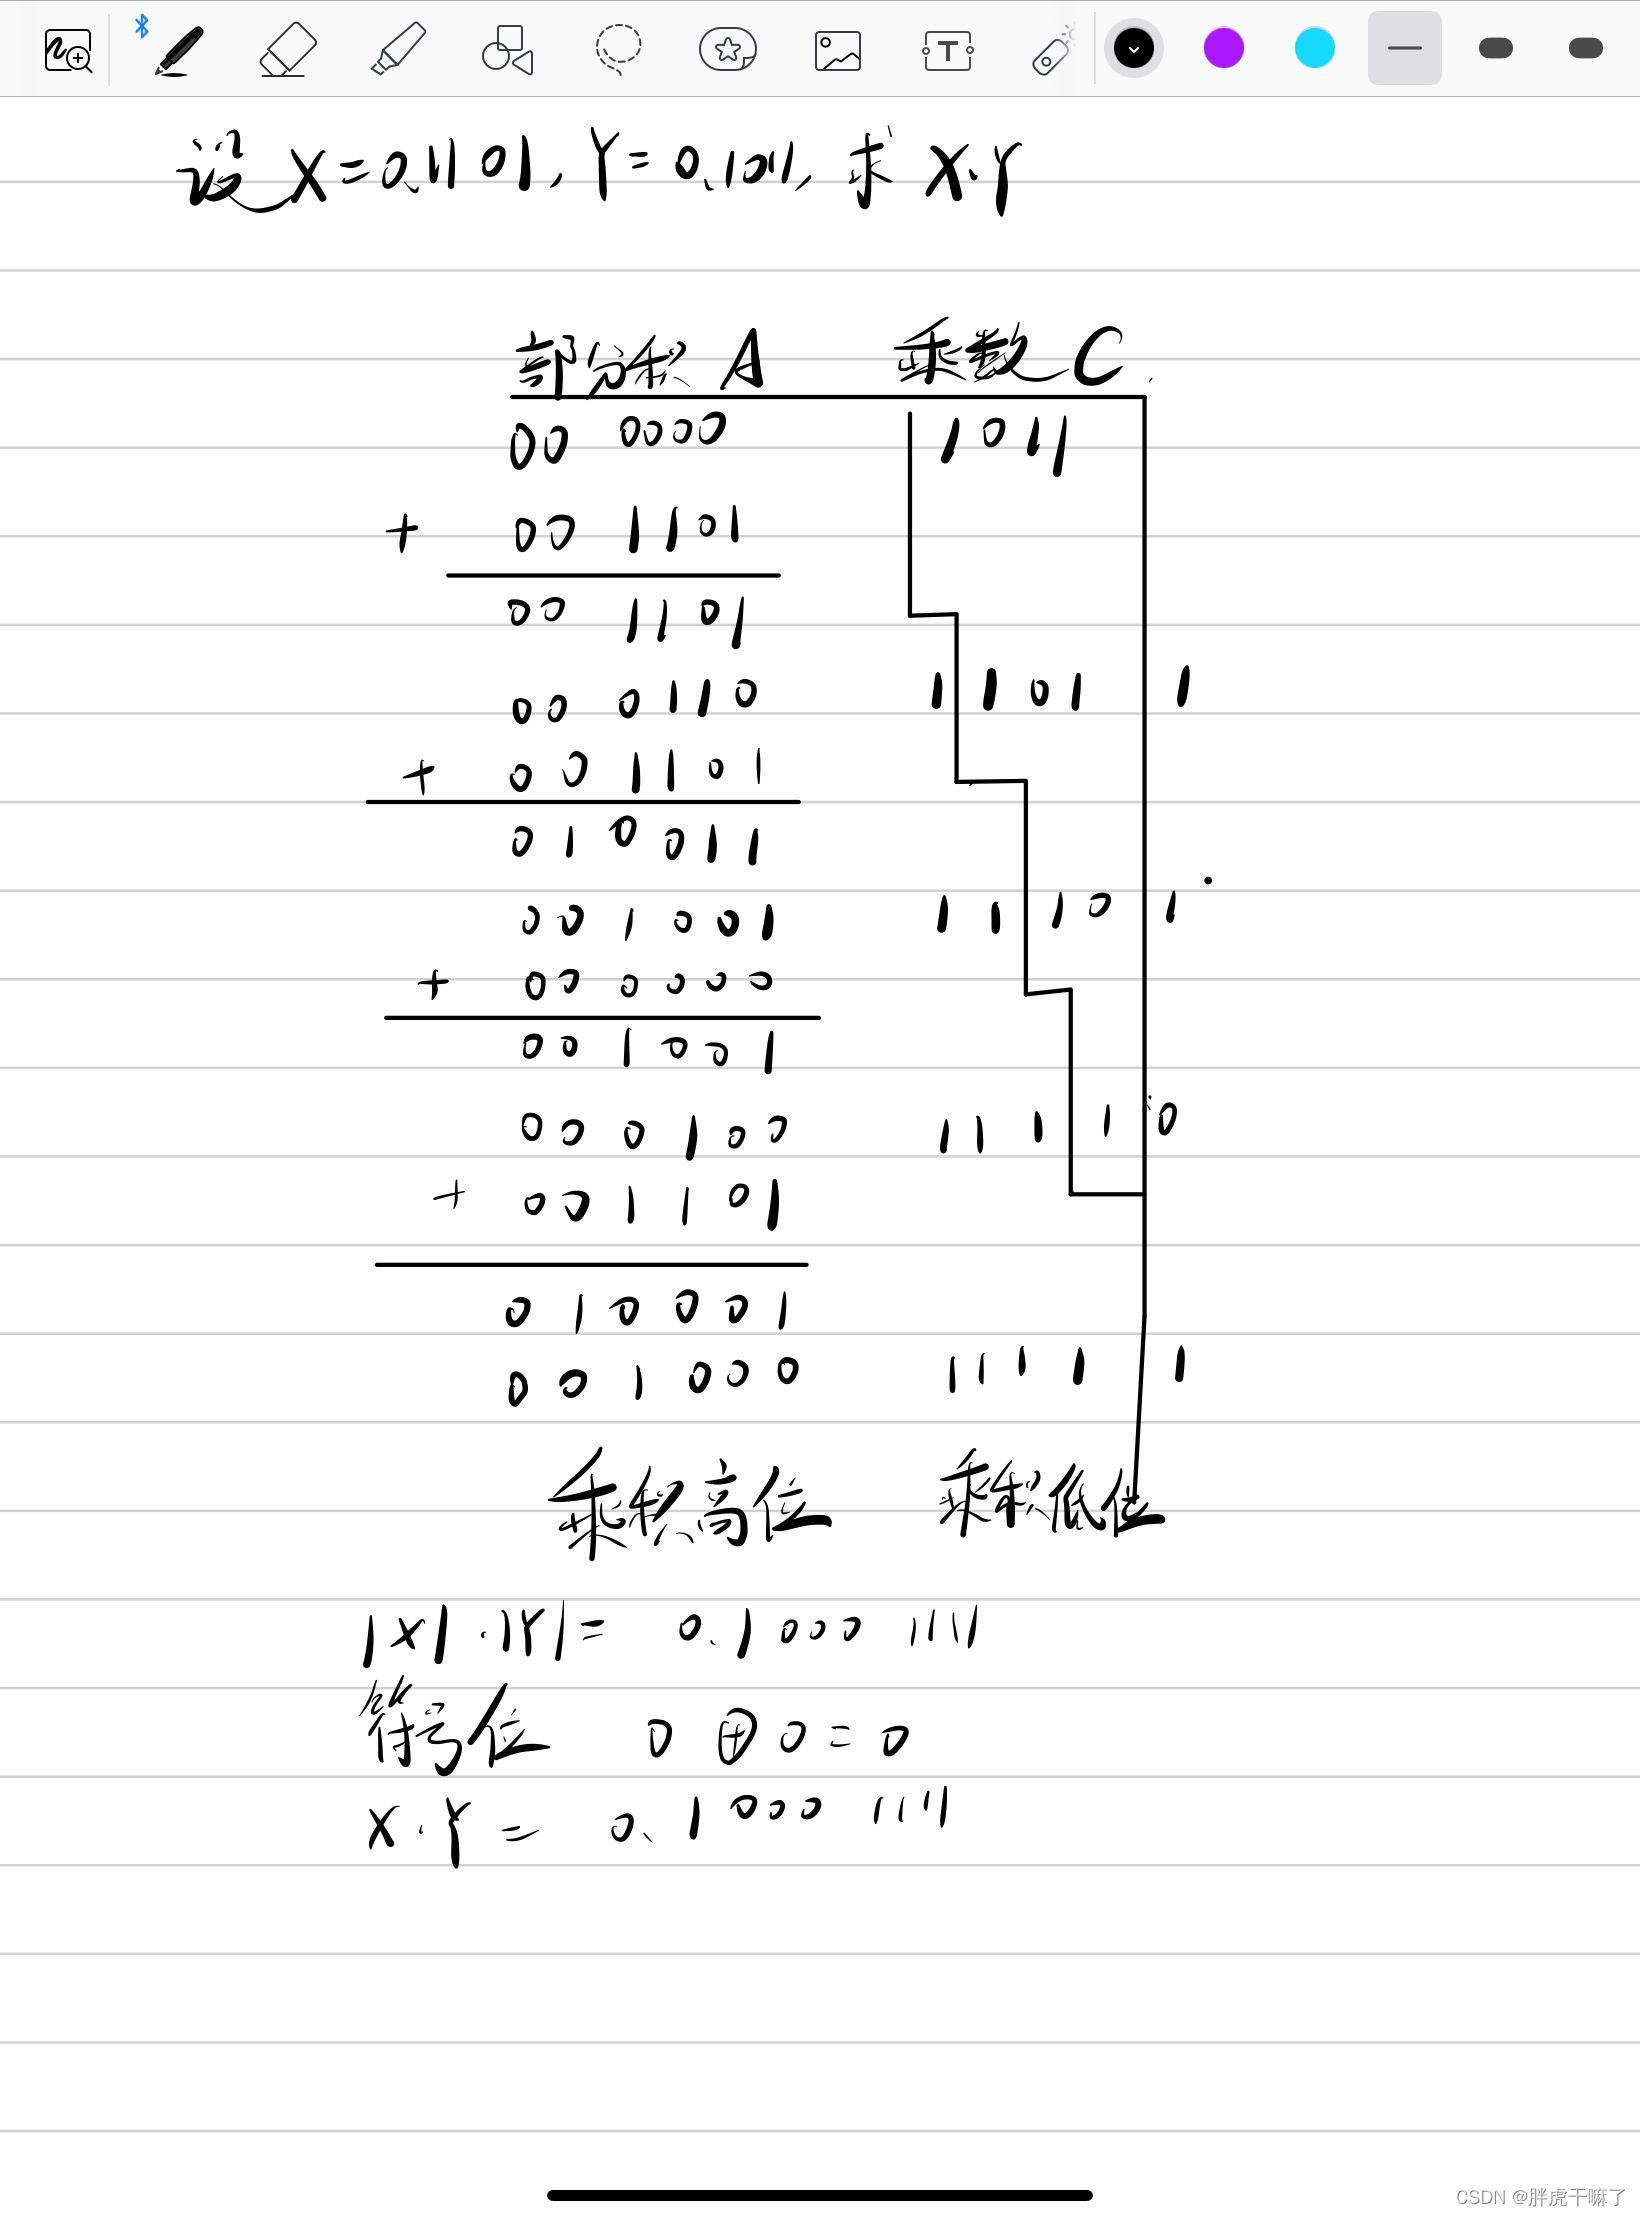 设 X=0.1101, Y=0.1011, 求 X.Y
部分积 A 乘数 C
00 0000 1011
+ 00 1101
00 1101
00 0110 1 101 1
+ 00 1101
01 0011
00 1001 11 10 1
+ 00 0000
00 1001
00 0100 111 1 0
+ 00 1101
01 0001
00 1000 1111 1
乘积高位 乘积低位
|X|·|Y|= 0.1000 1111
符号位 0 ⊕ 0 = 0
X·Y = 0.1000 1111
CSDN @胖虎干嘛了